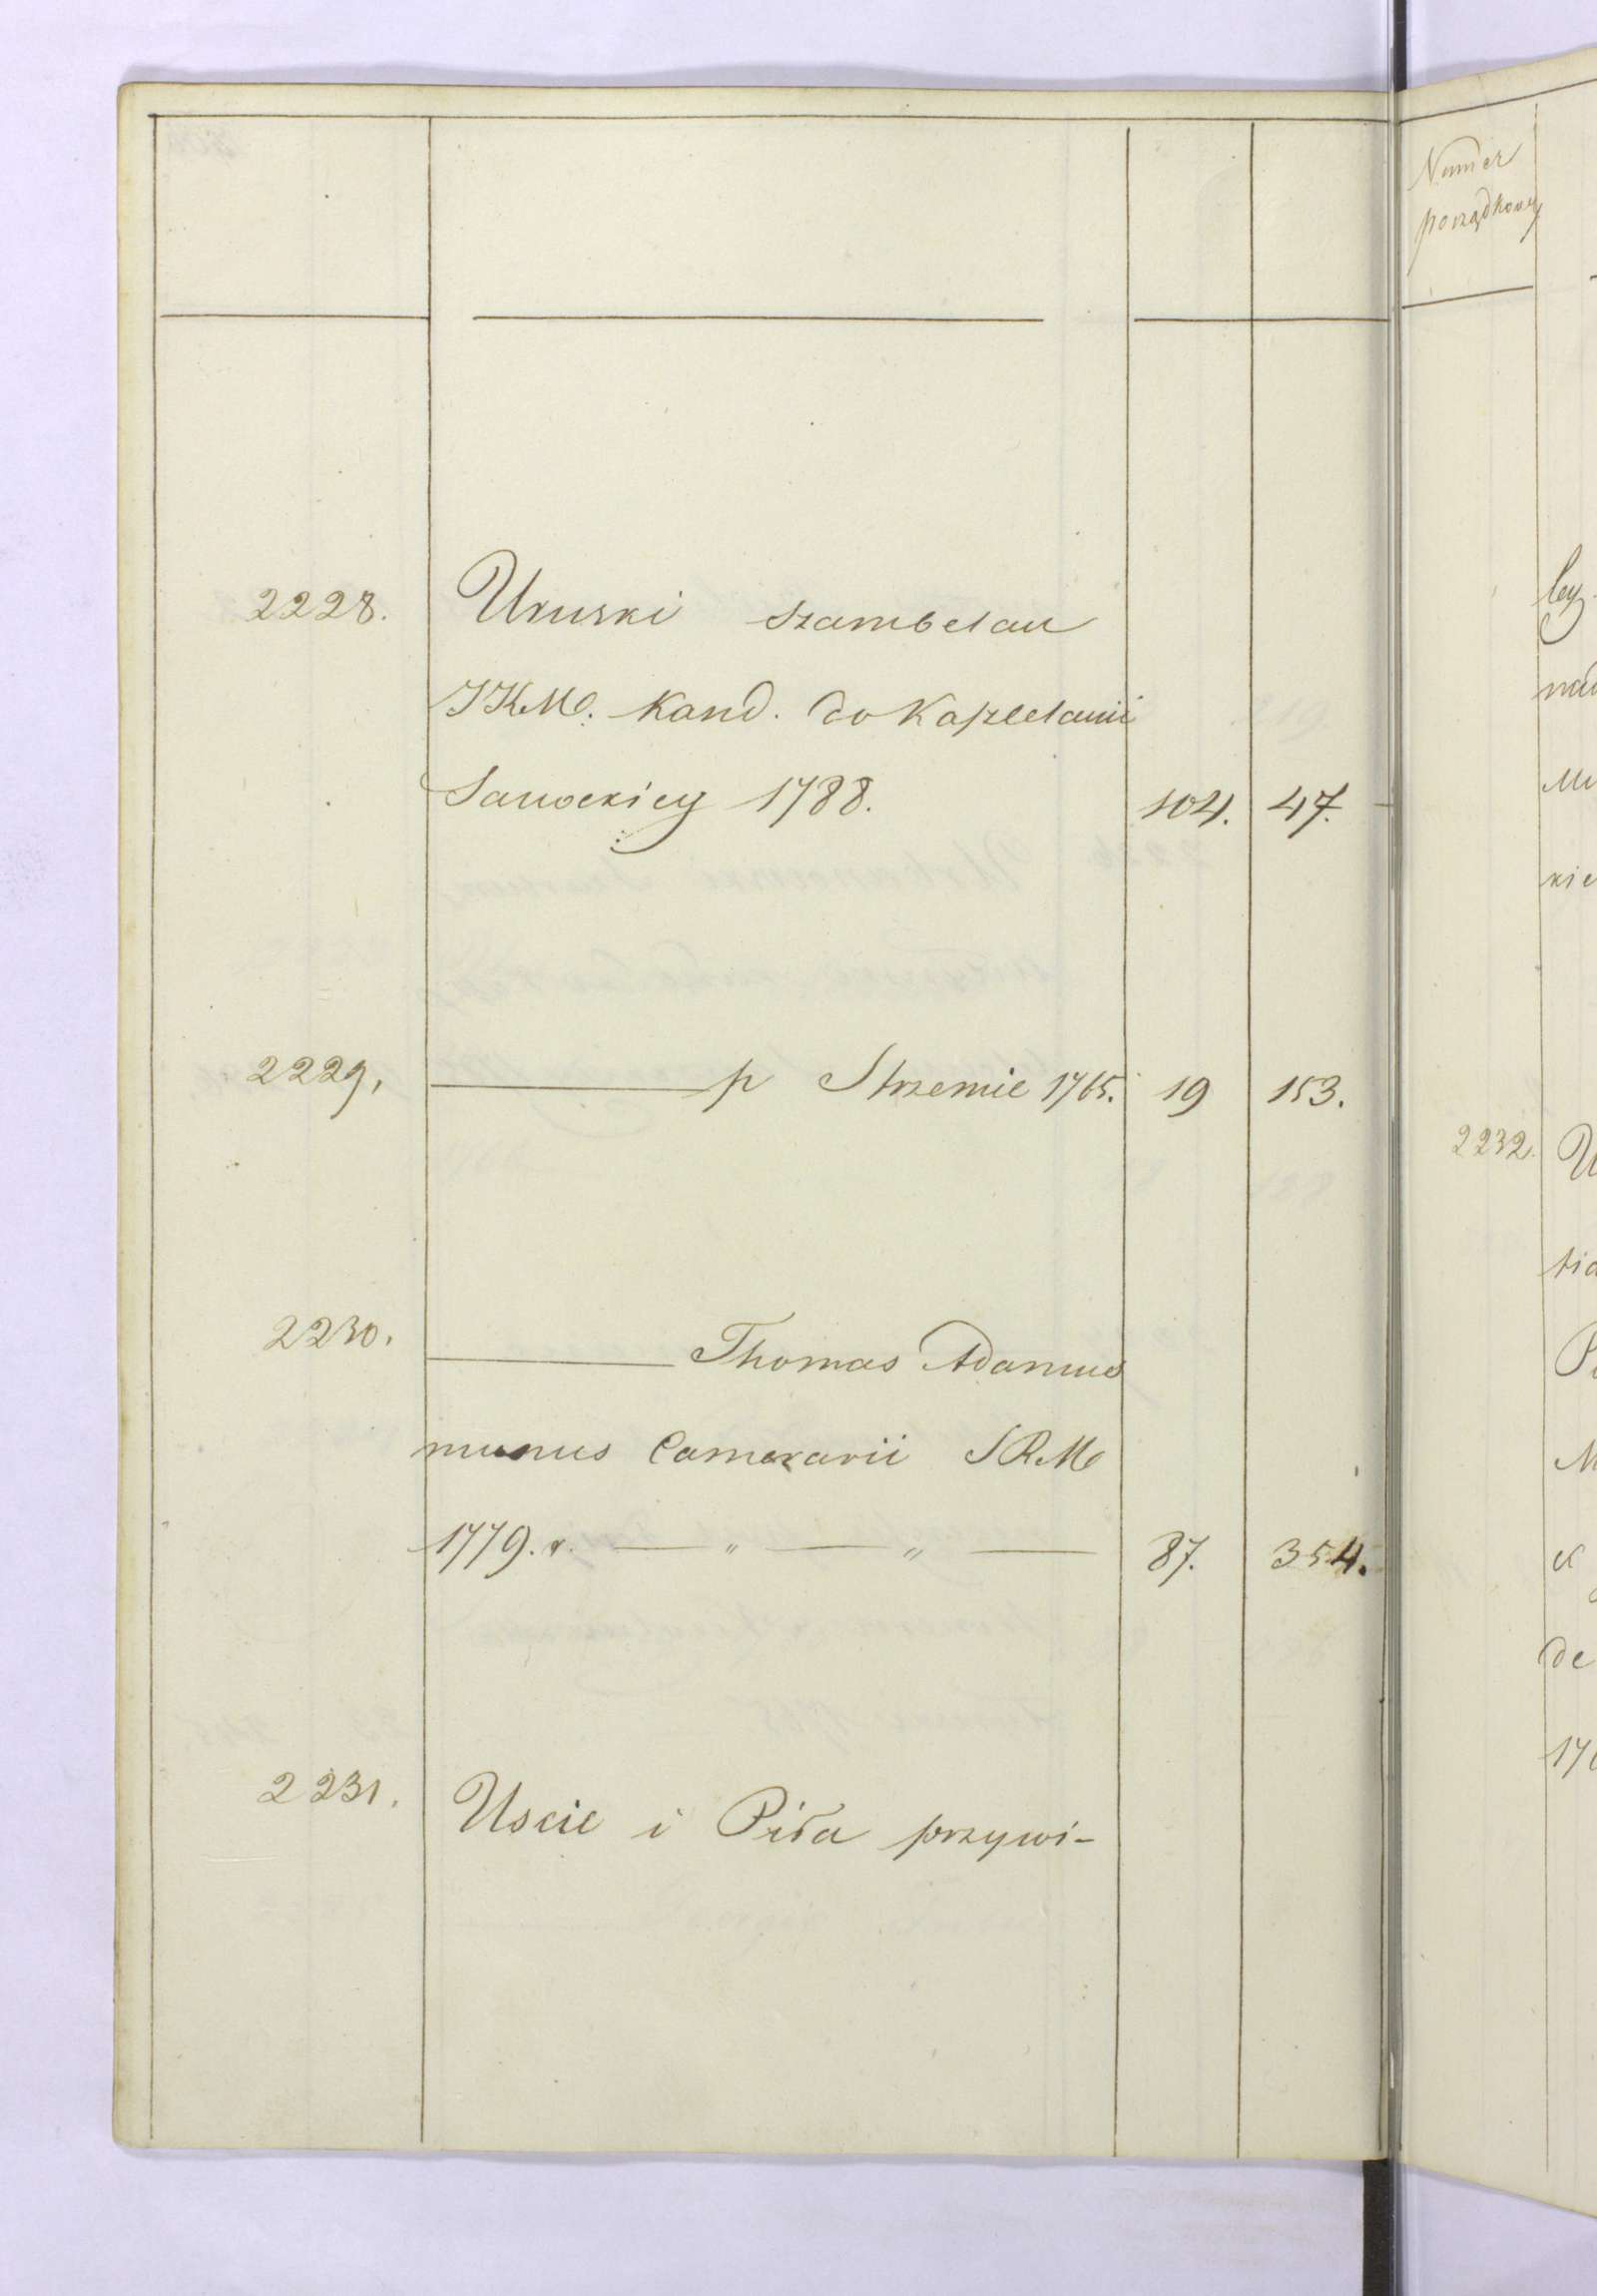 2228. Uruski szambelan
JKM. kand. do Kasztelanii
Sanockiey 1788. 104. 47.
2229. ——— p Strzemie 1765. 19 153.
2230. ——— Thomas Adamus
munus Camerarii SRM
1779. r. — " — " — 87. 354.
2231. Uscie i Piła przywi-
Numer
porządkowy
2232.